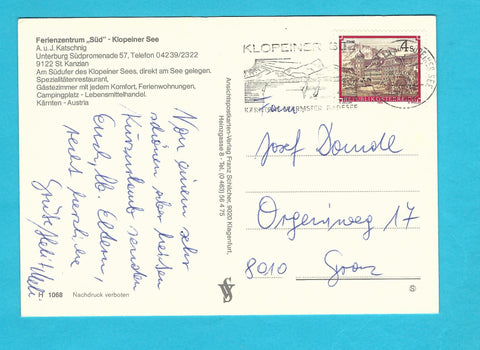 Ferienzentrum „Süd" - Klopeiner See
A. u. J. Katschnig
Unterburg Südpromenade 57, Telefon 04239/2322
9122 St. Kanzian
Am Südufer des Klopeiner Sees, direkt am See gelegen.
Spezialitätenrestaurant,
Gästezimmer mit jedem Komfort, Ferienwohnungen,
Campingplatz - Lebensmittelhandel.
Kärnten - Austria
Von einem sehr
schönen aber heißen
Kurzurlaub senden
Euch, lb. Eltern,
recht herzliche
Grüße
H 1068 Nachdruck verboten
Ansichtspostkarten-Verlag Franz Schilcher, 9020 Klagenfurt,
Heinzgasse 8 - Tel. (0 463) 56 4 75
KLOPEINER SEE
4 S
REPUBLIK ÖSTERREICH
Fam.
Josef
Orgeniweg 17
8010 Graz
S